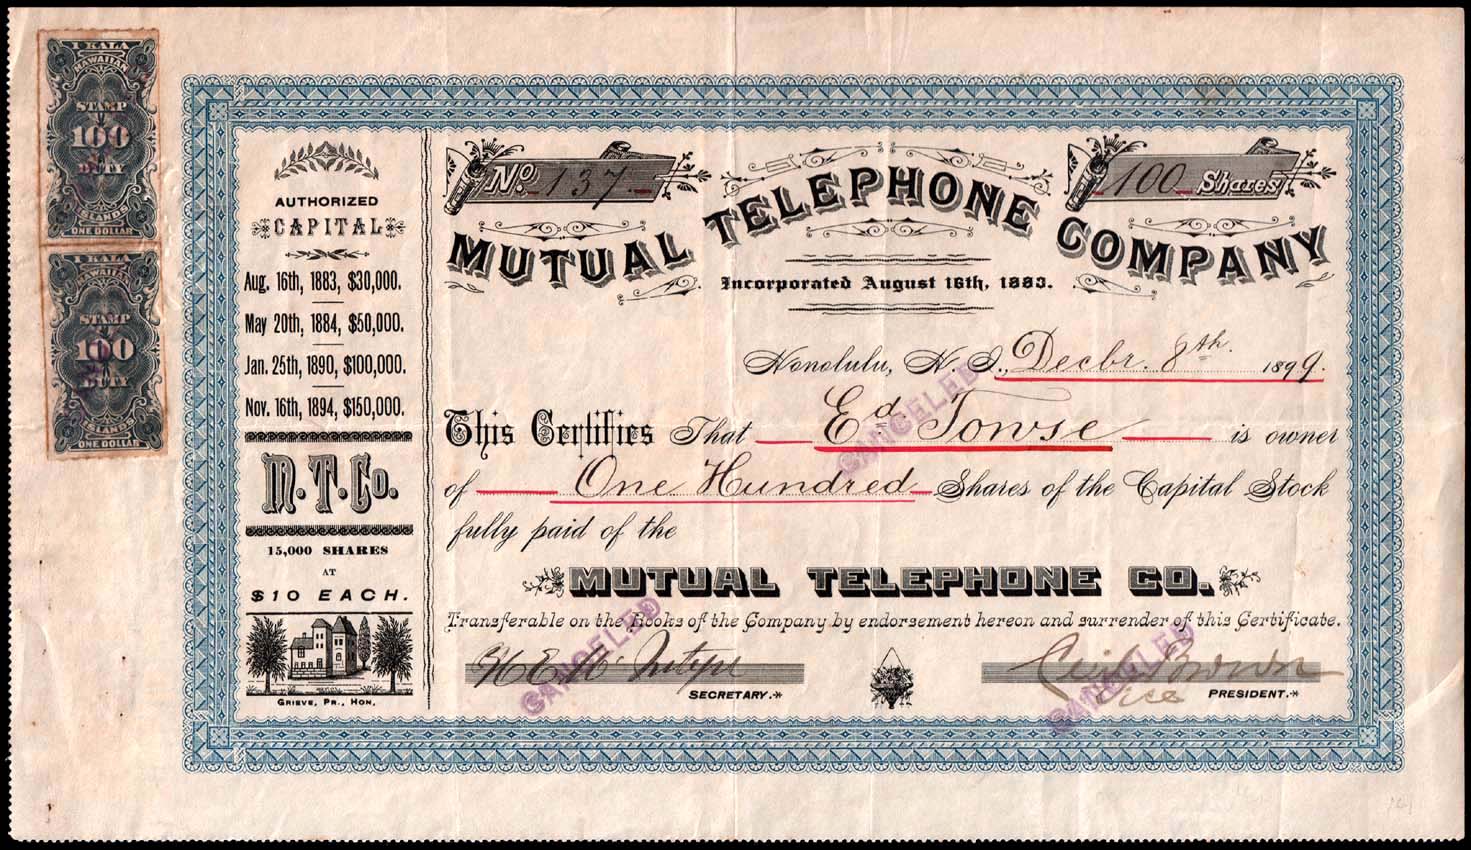 1 KALA
HAWAIIAN
STAMP
100
DUTY
ISLANDS
ONE DOLLAR
1 KALA
HAWAIIAN
STAMP
100
DUTY
ISLANDS
ONE DOLLAR
AUTHORIZED
CAPITAL
Aug. 16th, 1883, $30,000.
May 20th, 1884, $50,000.
Jan. 25th, 1890, $100,000.
Nov. 16th, 1894, $150,000.
M.T.Co.
15,000 SHARES
AT
$10 EACH.
GRIEVE, PR., HON.
No. 137
100 Shares
MUTUAL TELEPHONE COMPANY
Incorporated August 16th, 1883.
Honolulu, H. I., Decbr. 8th. 1899.
This Certifies That Ed Towse is owner
of One Hundred Shares of the Capital Stock
fully paid of the
MUTUAL TELEPHONE CO.
Transferable on the Books of the Company by endorsement hereon and surrender of this Certificate.
SECRETARY.
Cecil Brown
Vice PRESIDENT.
CANCELED
CANCELED
CANCELED